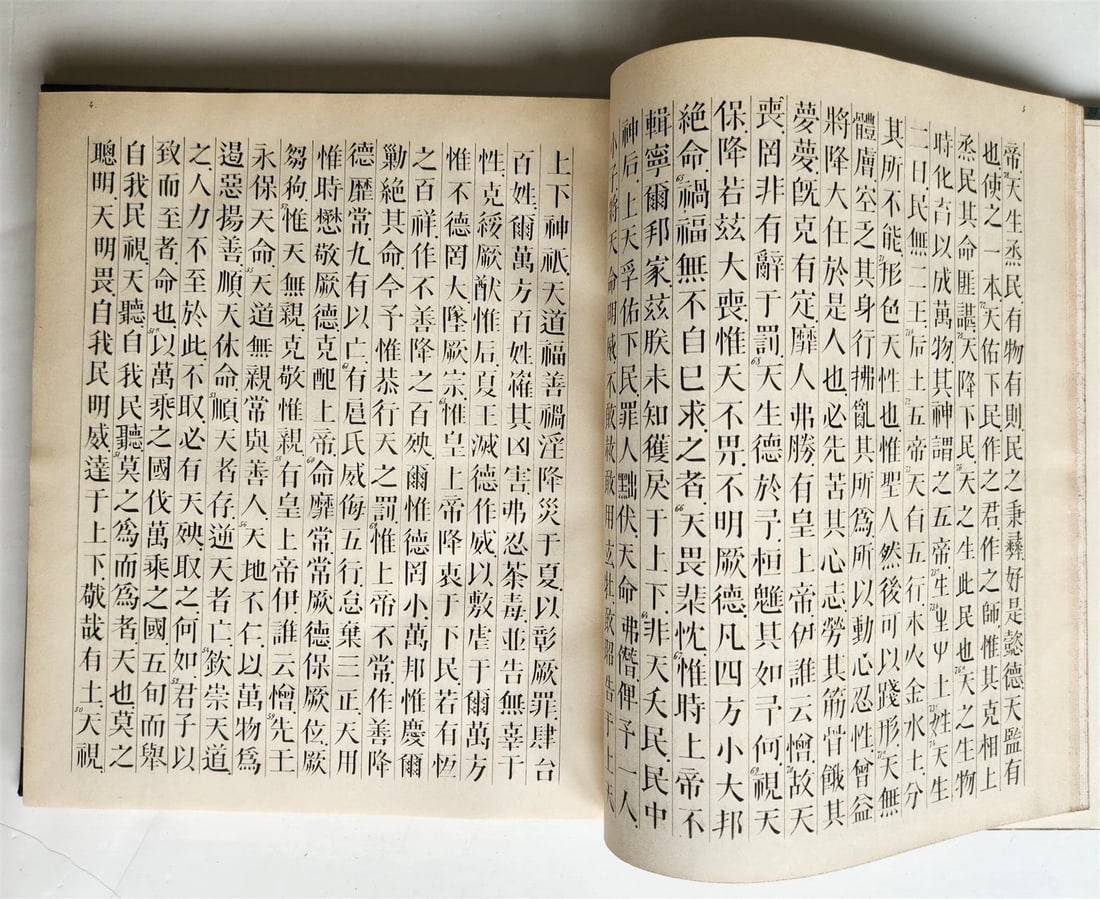 4
聰明.天明畏自我民明威.達于上下.敬哉有土.天視
自我民視.天聽自我民聽.莫之爲而爲者天也.莫之
致而至者命也.以萬乘之國伐萬乘之國.五旬而舉
之.人力不至於此.不取必有天殃.取之何如.君子以
遏惡揚善.順天休命.順天者存.逆天者亡.欽崇天道
永保天命.天道無親常與善人.天地不仁.以萬物爲
芻狗.惟天無親.克敬惟親.有皇上帝伊誰云憎.先王
惟時懋敬厥德克配上帝.命靡常.常厥德保厥位.厥
德靡常.九有以亡.有扈氏威侮五行.怠棄三正.天用
勦絕其命.今予惟恭行天之罰.惟上帝不常.作善降
之百祥.作不善降之百殃.爾惟德罔小.萬邦惟慶.爾
惟不德罔大.墜厥宗.惟皇上帝降衷于下民.若有恆
性.克綏厥猷惟后.夏王滅德作威.以敷虐于爾萬方
百姓.爾萬方百姓罹其凶害.弗忍荼毒.並告無辜于
上下神祇.天道福善禍淫.降災于夏.以彰厥罪.肆台
5
小子將天命明威.不敢赦.敢用玄牡.敢昭告于上天
神后.上天孚佑下民.罪人黜伏.天命弗僭.俾予一人.
輯寧爾邦家.茲朕未知獲戾于上下.非天夭民.民中
絕命.禍福無不自己求之者.天畏棐忱.惟時上帝不
保.降若茲大喪.惟天不畀.不明厥德.凡四方小大邦
喪.罔非有辭于罰.天生德於予.桓魋其如予何.視天
夢夢.旣克有定.靡人弗勝.有皇上帝伊誰云憎.故天
將降大任於是人也.必先苦其心志.勞其筋骨.餓其
體膚.空乏其身.行拂亂其所爲.所以動心忍性.曾益
其所不能.形色天性也.惟聖人然後可以踐形.天無
二日.民無二王.后土.五帝.天有五行.木火金水土.分
時化育以成萬物.其神謂之五帝.生.上.姓.天生
烝民其命匪諶.天降下民.天之生此民也.天之生物
也使之一本.天佑下民作之君.作之師.惟其克相上
帝.天生烝民.有物有則.民之秉彝.好是懿德.天監有